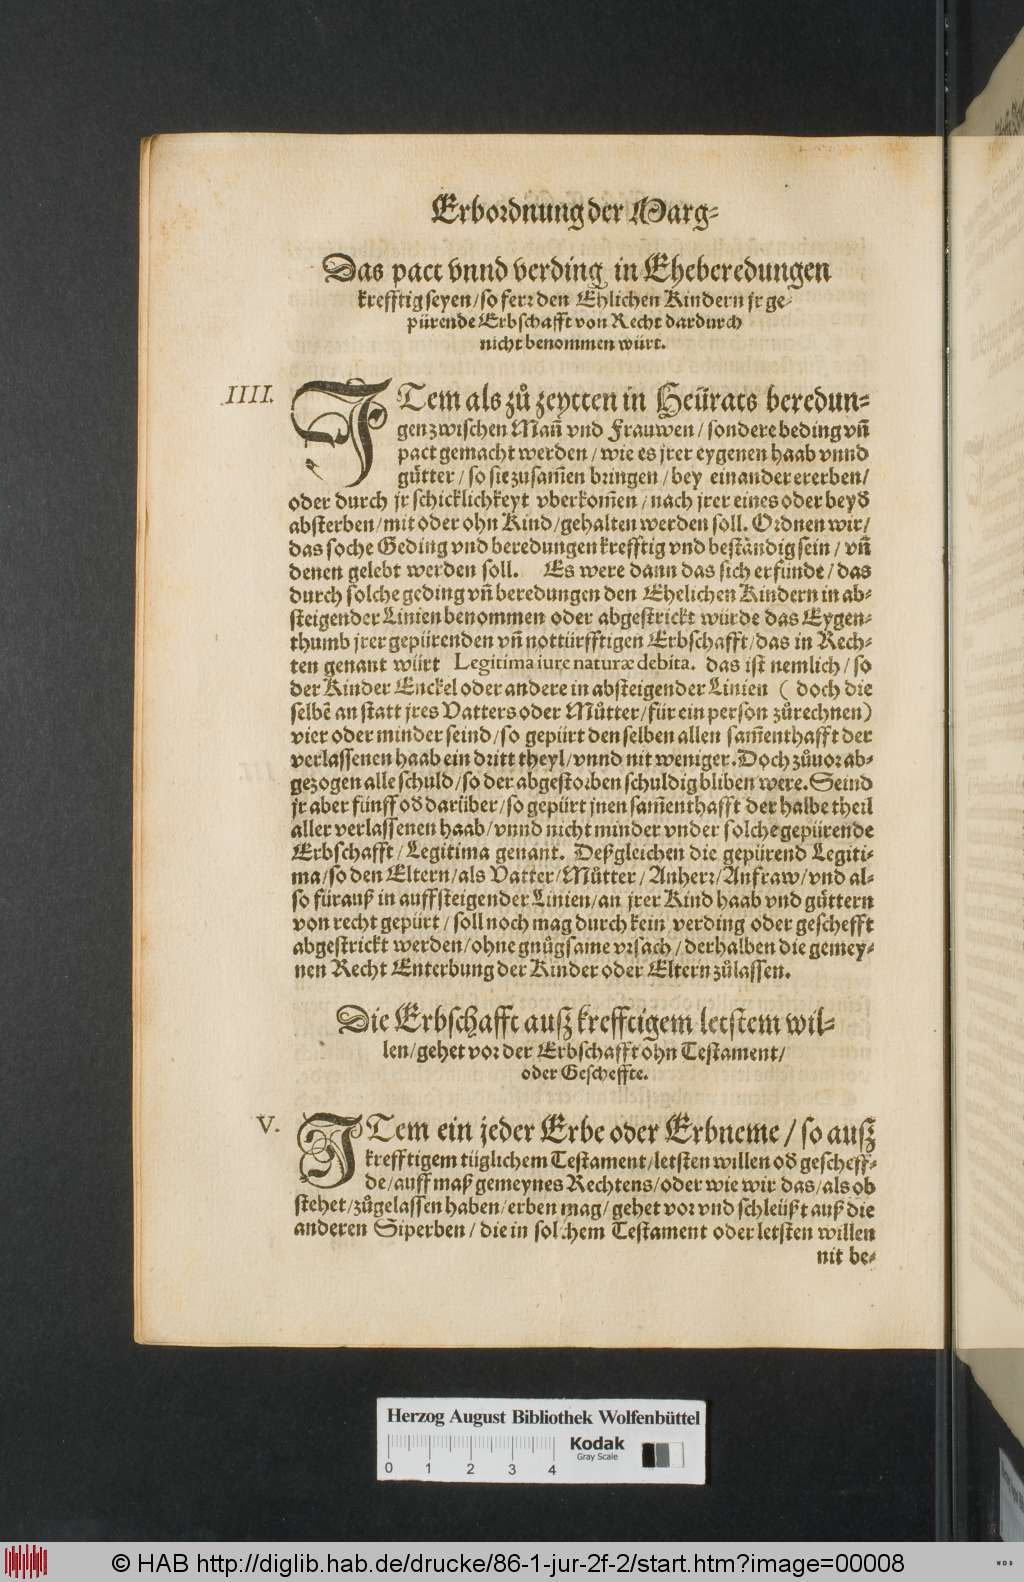 Erbordnung der Marg-
Das pact vnnd verding in Eheberedungen
krefftig seyen/so ferr den Ehlichen Kindern jr ge-
pürende Erbschafft von Recht dardurch
nicht benommen würt.
IIII. ITem als zů zeytten in Heürats beredun-
gen zwischen Mañ vnd Frauwen/sondere beding vñ
pact gemacht werden/wie es jrer eygenen haab vnnd
gütter/so sie zusam̃en bringen/bey einander ererben/
oder durch jr schicklichkeyt vberkom̃en/nach jrer eines oder beyd
absterben/mit oder ohn Kind/gehalten werden soll. Ordnen wir/
das soche Geding vnd beredungen krefftig vnd beständig sein/vñ
denen gelebt werden soll. Es were dann das sich erfünde/das
durch solche geding vñ beredungen den Ehelichen Kindern in ab-
steigender Linien benommen oder abgestrickt würde das Eygen-
thumb jrer gepürenden vñ nottürfftigen Erbschafft/das in Rech-
ten genant würt Legitima iure naturæ debita. das ist nemlich/so
der Kinder Enckel oder andere in absteigender Linien (doch die
selbẽ an statt jres Vatters oder Můtter/für ein person zůrechnen)
vier oder minder seind/so gepürt den selben allen sam̃enthafft der
verlassenen haab ein dritt theyl/vnnd nit weniger. Doch zůuor ab-
gezogen alle schuld/so der abgestorben schuldig bliben were. Seind
jr aber fünff od darüber/so gepürt jnen sam̃enthafft der halbe theil
aller verlassenen haab/vnnd nicht minder vnder solche gepürende
Erbschafft/Legitima genant. Deßgleichen die gepürend Legiti-
ma/so den Eltern/als Vatter/Můtter/Anherr/Anfraw/vnd al-
so fürauß in auffsteigender Linien/an jrer Kind haab vnd güttern
von recht gepürt/soll noch mag durch kein verding oder geschefft
abgestrickt werden/ohne gnůgsame vrsach/derhalben die gemey-
nen Recht Enterbung der Kinder oder Eltern zůlassen.
Die Erbschafft auß krefftigem letstem wil-
len/gehet vor der Erbschafft ohn Testament/
oder Gescheffte.
V. ITem ein jeder Erbe oder Erbneme/so auß
krefftigem tüglichem Testament/letsten willen od gescheff-
de/auff maß gemeynes Rechtens/oder wie wir das/als ob
stehet/zůgelassen haben/erben mag/gehet vor vnd schleüßt auß die
anderen Siperben/die in solchem Testament oder letsten willen
nit be-
Herzog August Bibliothek Wolfenbüttel
Kodak
Gray Scale
0 1 2 3 4
© HAB http://diglib.hab.de/drucke/86-1-jur-2f-2/start.htm?image=00008